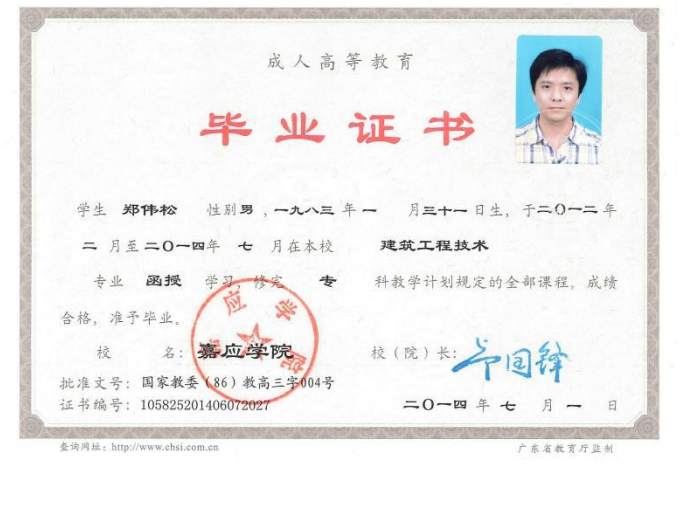 成人高等教育
毕业证书
学生 郑伟松 性别男，一九八三年一 月三十一日生，于二〇一二年
二 月至二〇一四年 七 月在本校 建筑工程技术
专业 函授 学习，修完 专 科教学计划规定的全部课程，成绩
合格，准予毕业。
校 名：嘉应学院 校（院）长：
批准文号：国家教委（86）教高三字004号
证书编号：105825201406072027 二〇一四年 七 月 一 日
嘉应学院
查询网址：http://www.chsi.com.cn 广东省教育厅监制